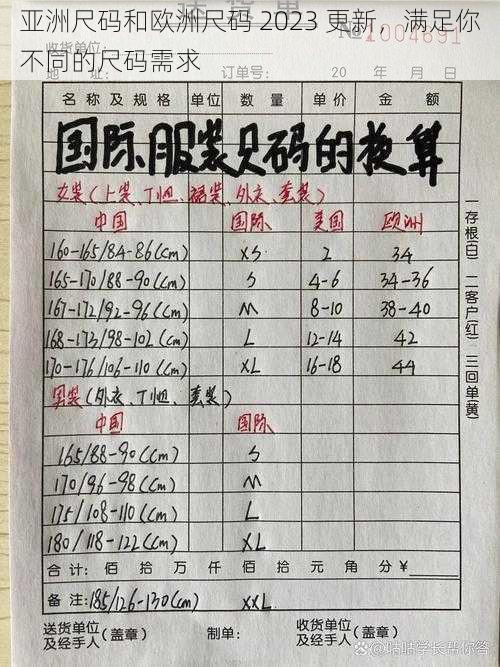 亚洲尺码和欧洲尺码 2023 更新，满足你
不同的尺码需求
送货单
1004691
收货单位
订单号： 20 年 月 日
名称及规格 单位 数量 单价 金额
国际服装尺码的换算
女装（上装、T恤、裙装、外衣、套装）
中国 国际 美国 欧洲
160-165/84-86(cm) XS 2 34
165-170/88-90(cm) S 4-6 34-36
167-172/92-96(cm) M 8-10 38-40
168-173/98-102(cm) L 12-14 42
170-176/106-110(cm) XL 16-18 44
男装（外衣、T恤、套装）
中国 国际
165/88-90(cm) S
170/96-98(cm) M
175/108-110(cm) L
180/118-122(cm) XL
合计： 佰 拾 万 仟 佰 拾 元 角 分 ¥
备注：185/126-130(cm) XXL
送货单位及经手人（盖章） 收货单位及经手人（盖章）
一存根(白) 二客户(红) 三回单(黄)
@咕咕学长帮你答